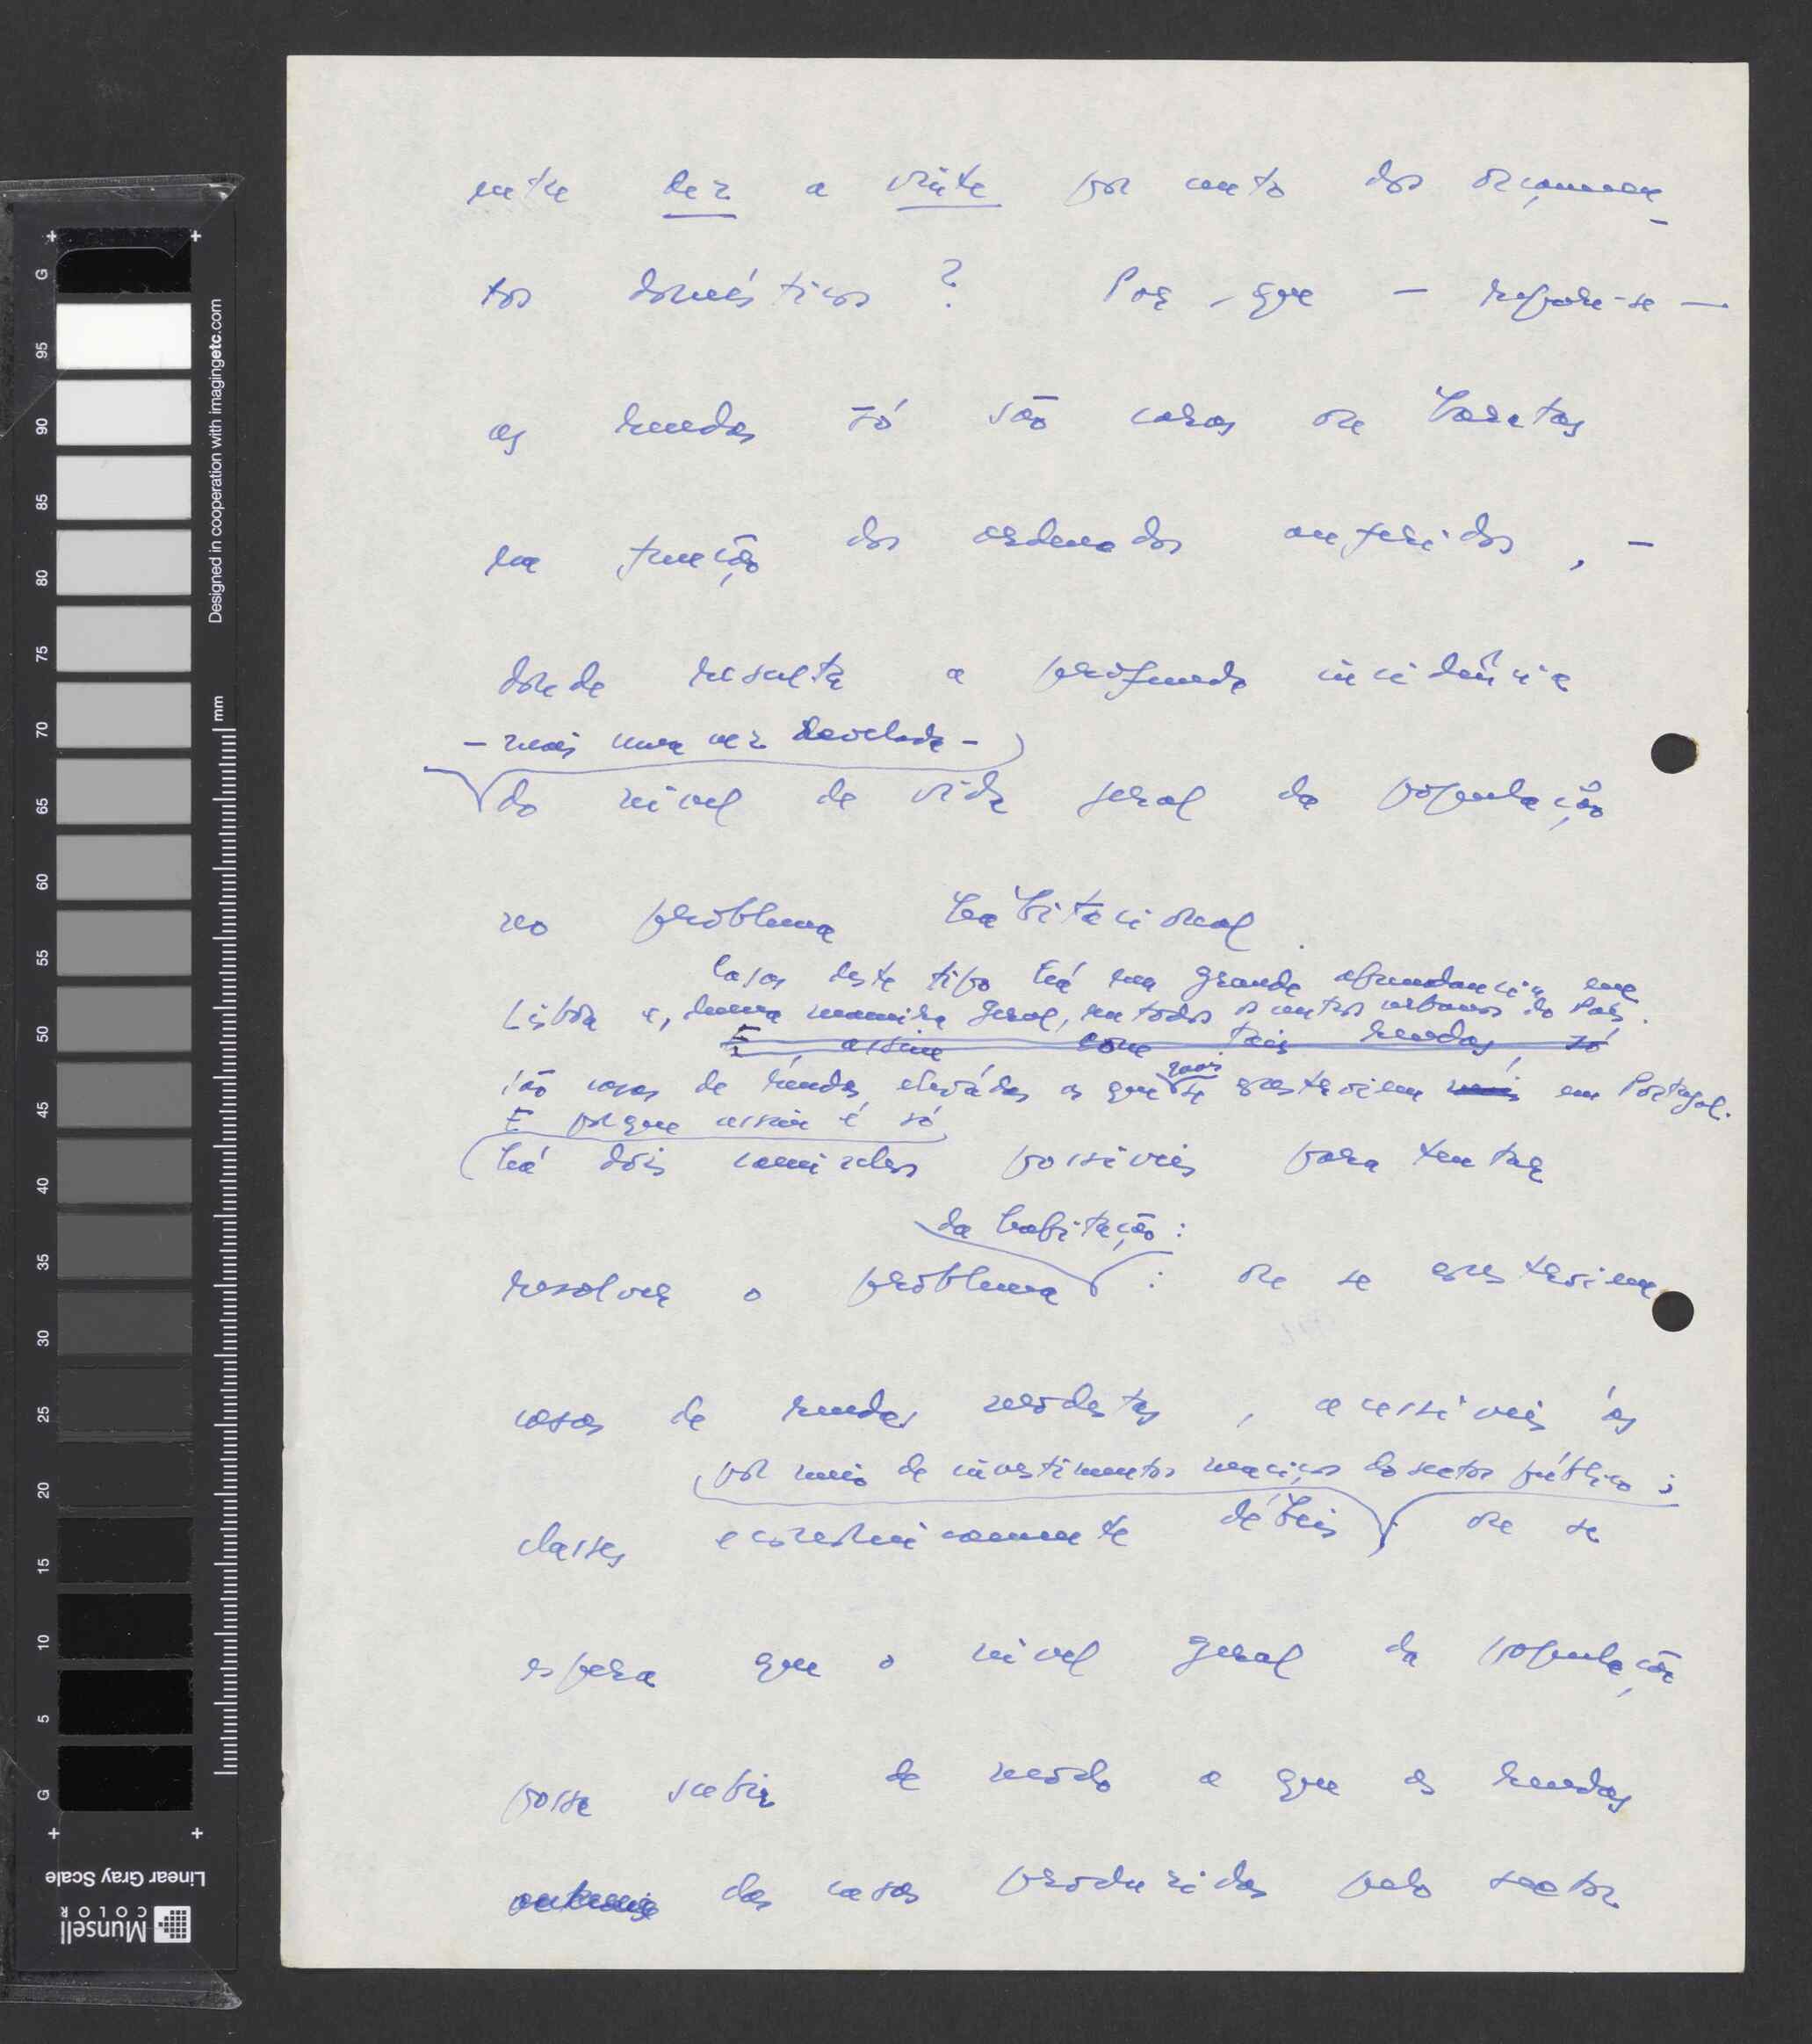 entre dez a vinte por cento dos orçamen-
tos domésticos? Por que — repare-se —
as rendas só são caras ou baratas
em função dos ordenados auferidos, -
donde resulta a profunda incidência
- mais uma vez revelada -
do nível de vida geral da população
no problema habitacional.
Casas deste tipo há em grande abundancia em
Lisboa e, duma maneira geral, em todos os centros urbanos do País.
E, assim com tais rendas, só
são casas de rendas elevadas as que mais se constroiem mais em Portugal.
E porque assim é só
há dois caminhos possiveis para tentar
da habitação:
resolver o problema : ou se constroiem
casas de rendas modestas, acessiveis ás
por meio de investimentos maciços do sector público;
classes economicamente débeis; ou se
espera que o nivel geral da população
possa subir de modo a que as rendas
das casas produzidas pelo sector
G
95
90
85
80
75
70
65
60
55
50
45
40
35
30
25
20
15
10
5
G
mm
Designed in cooperation with imagingetc.com
Linear Gray Scale
Munsell
COLOR